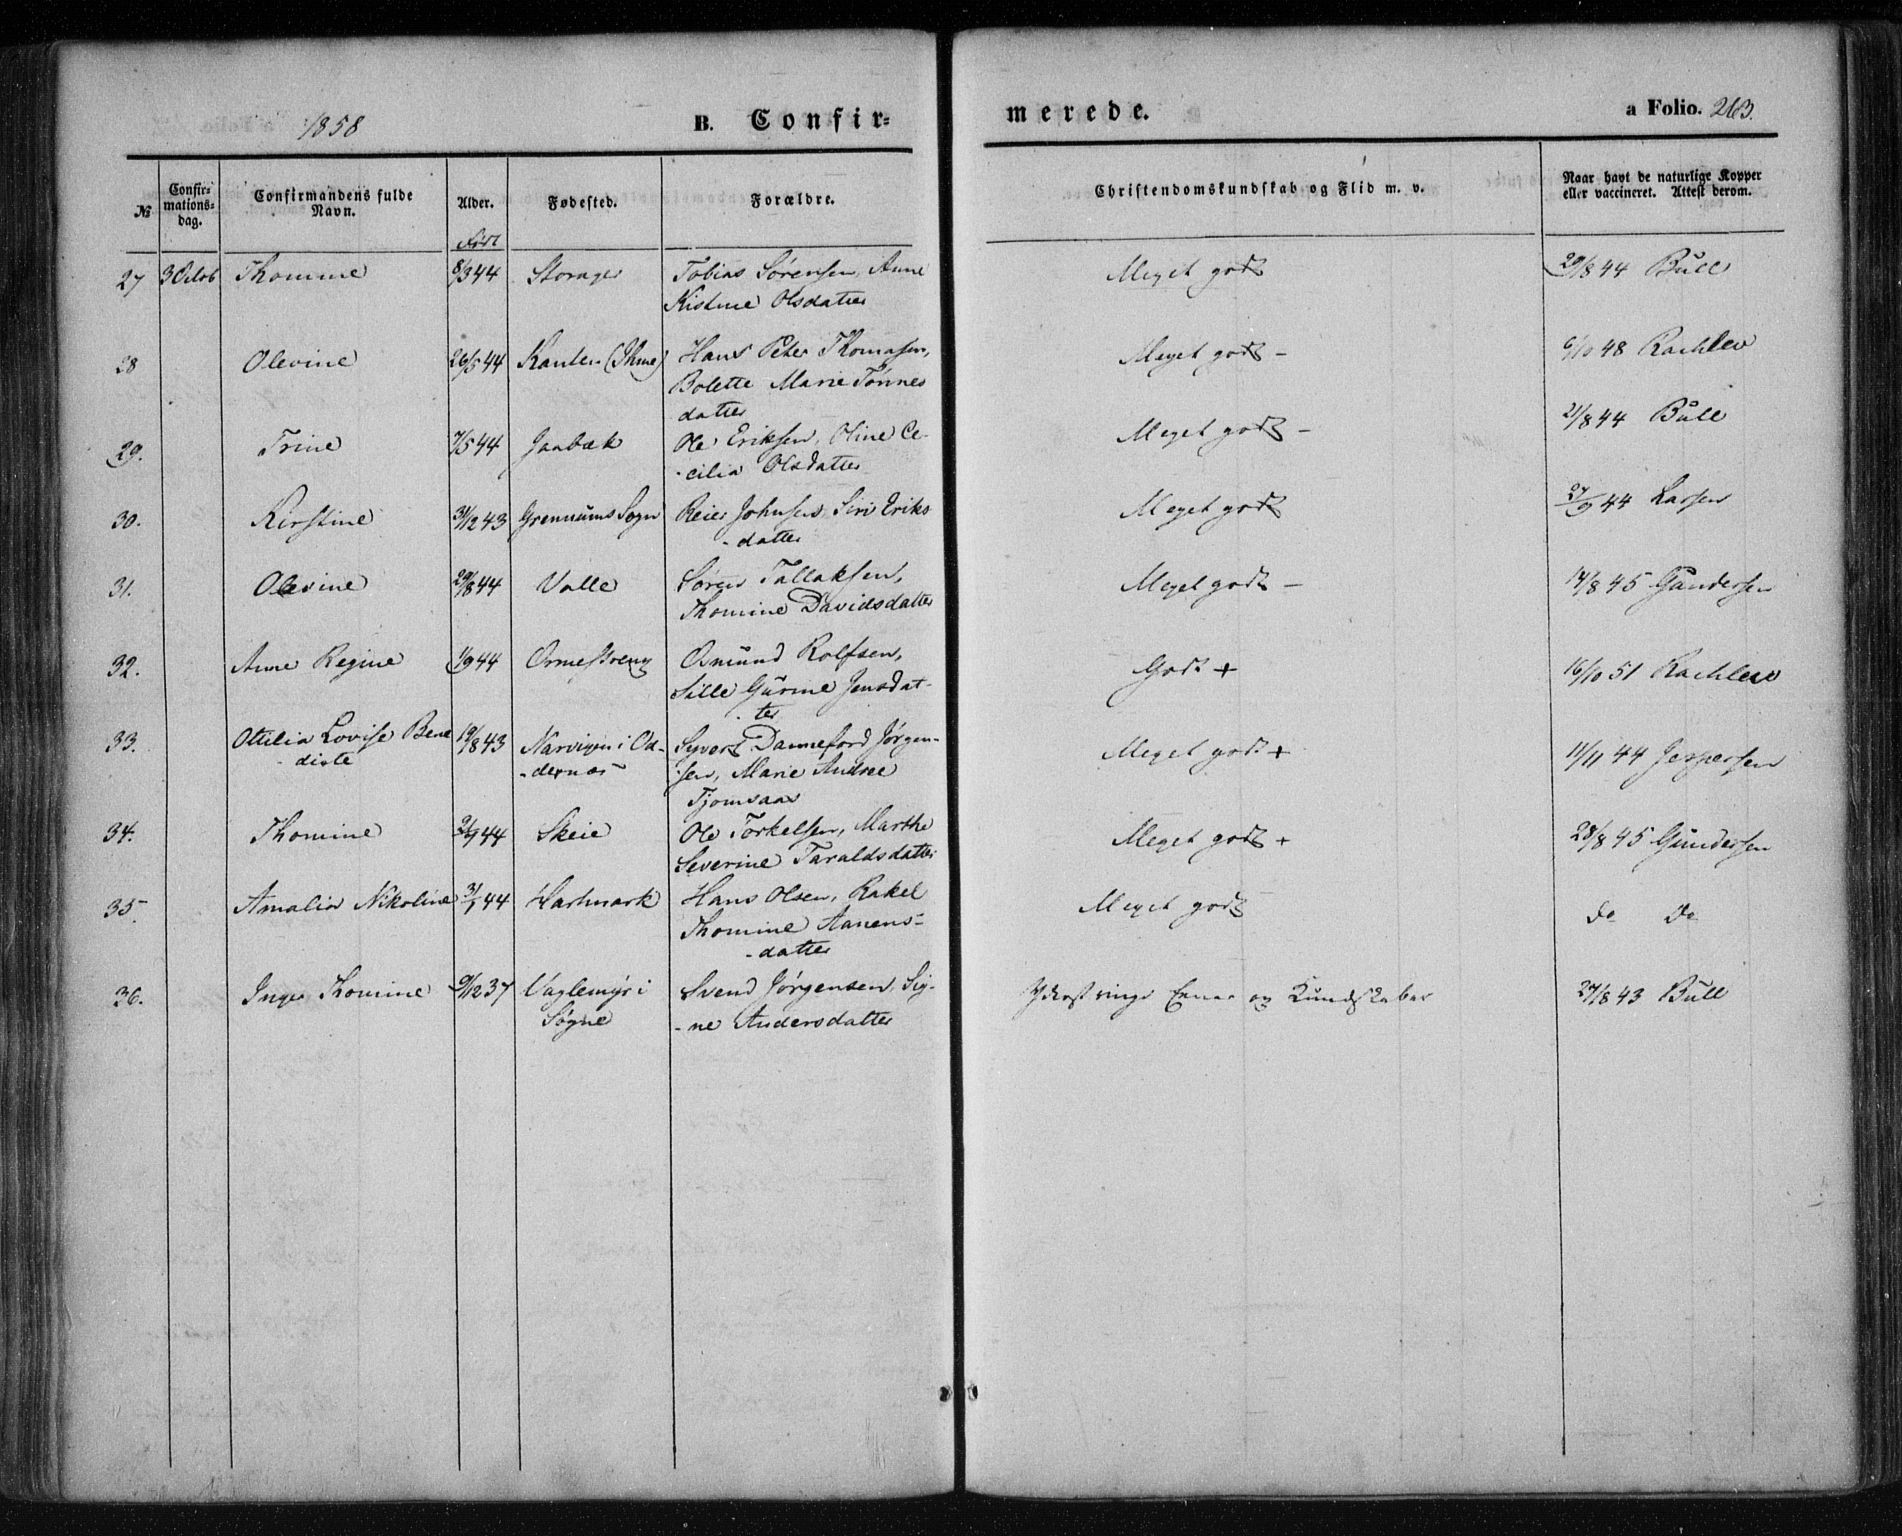 1858 B. Confirmerede. a Folio. 263.
№ Confirmationsdag. Confirmandens fulde Navn. Alder. Fødested. Forældre. Christendomskundskab og Flid m. v. Naar havt de naturlige Kopper eller vaccineret. Attest derom.
Født
27 3 Octob Thomine 8/3 44 Storager Tobias Sørensen, Anne Meget godt 29/8 44 Bull
Kistine Olsdatter
28 Olevine 26/5 44 Hans Peter Thomasen, Meget godt - 6/10 48
Bolette Marie Tønnes
datter
29. Trine 7/5 44 Jaabæk Ole Eriksen, Oline Ce- Meget godt - 21/8 44 Bull
-cilia Olsdatter
30. Kirstine 31/12 43 Grennums Sogn Reier Johnsen, Siri Eriks Meget godt 27/9 44 Larsen
-datter
31. Olevine 29/8 44 Valle Søren Tallaksen, Meget godt - 14/8 45 Gundersen
Thomine Davidsdatter
32. Anne Regine 1/9 44 Ormestreng Osmund Rolfsen, Godt + 16/10 51
Sille Gurine Jensdat-
-ter
33. Ottilia Lovise Bene 19/8 43 Narvigen i Od- Syvert Danneford Jørgen- Meget godt + 11/11 44 Jespersen
-dicte -dernæs -sen, Marie Andrea
Tjomsaas
34. Thomine 2/9 44 Skeie Ole Torkelsen, Marthe Meget godt + 28/8 45 Gundersen
Severine Taraldsdatter
35. Amalia Nikoline 31/1 44 Hartmark Hans Olsen, Rakel Meget godt do do
Thomine Aanens-
-datter
36. Inger Thomine 9/12 37 Vaglemyr i Svend Jørgensen, Sig- Yderst ringe Evner og Kundskaber 27/8 43 Bull
Søgne -ne Andersdatter